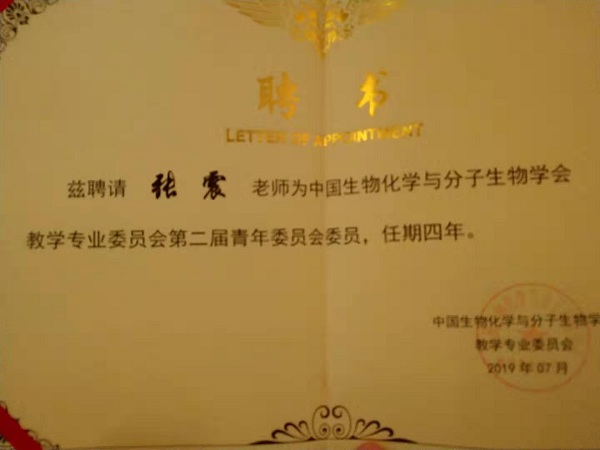 聘书
LETTER OF APPOINTMENT
兹聘请 张震 老师为中国生物化学与分子生物学会
教学专业委员会第二届青年委员会委员，任期四年。
中国生物化学与分子生物学
教学专业委员会
2019 年 07 月